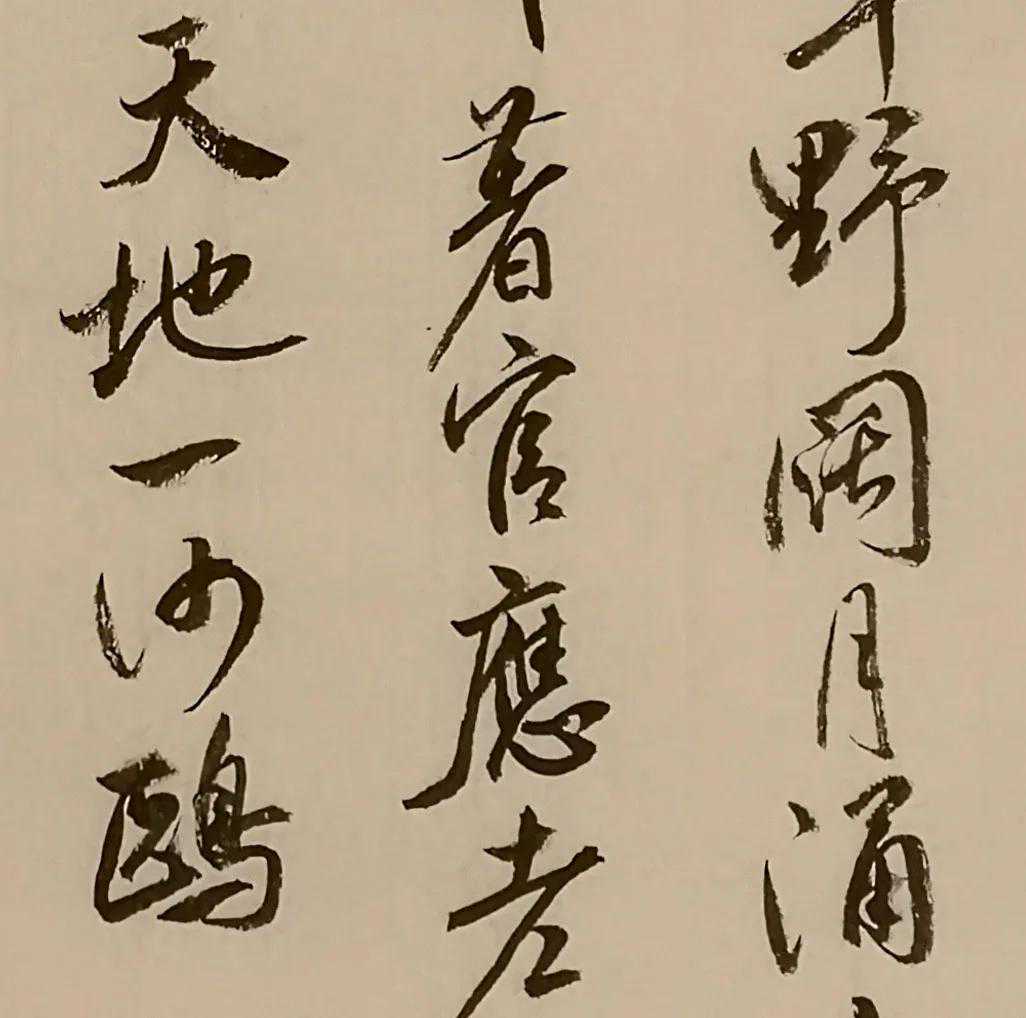 平野闊月涌
著官應老
天地一沙鷗